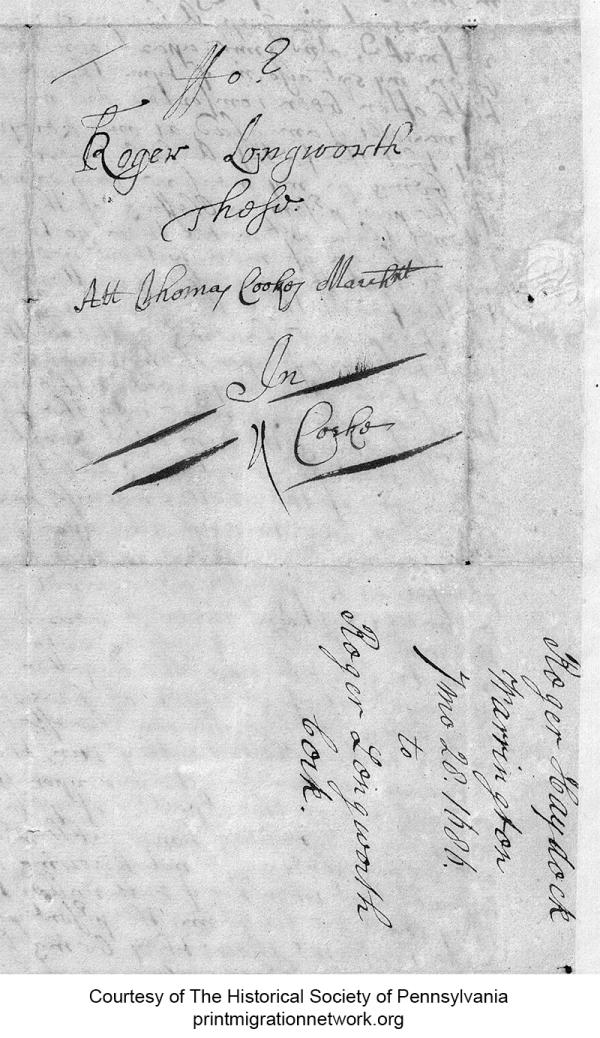 Roger Longworth
These
Att Thomas Cookes Marcht
In
Corke
Roger Haydock
Warrington
7mo 28. 1686.
to
Roger Longworth
Cork.
Courtesy of The Historical Society of Pennsylvania
printmigrationnetwork.org